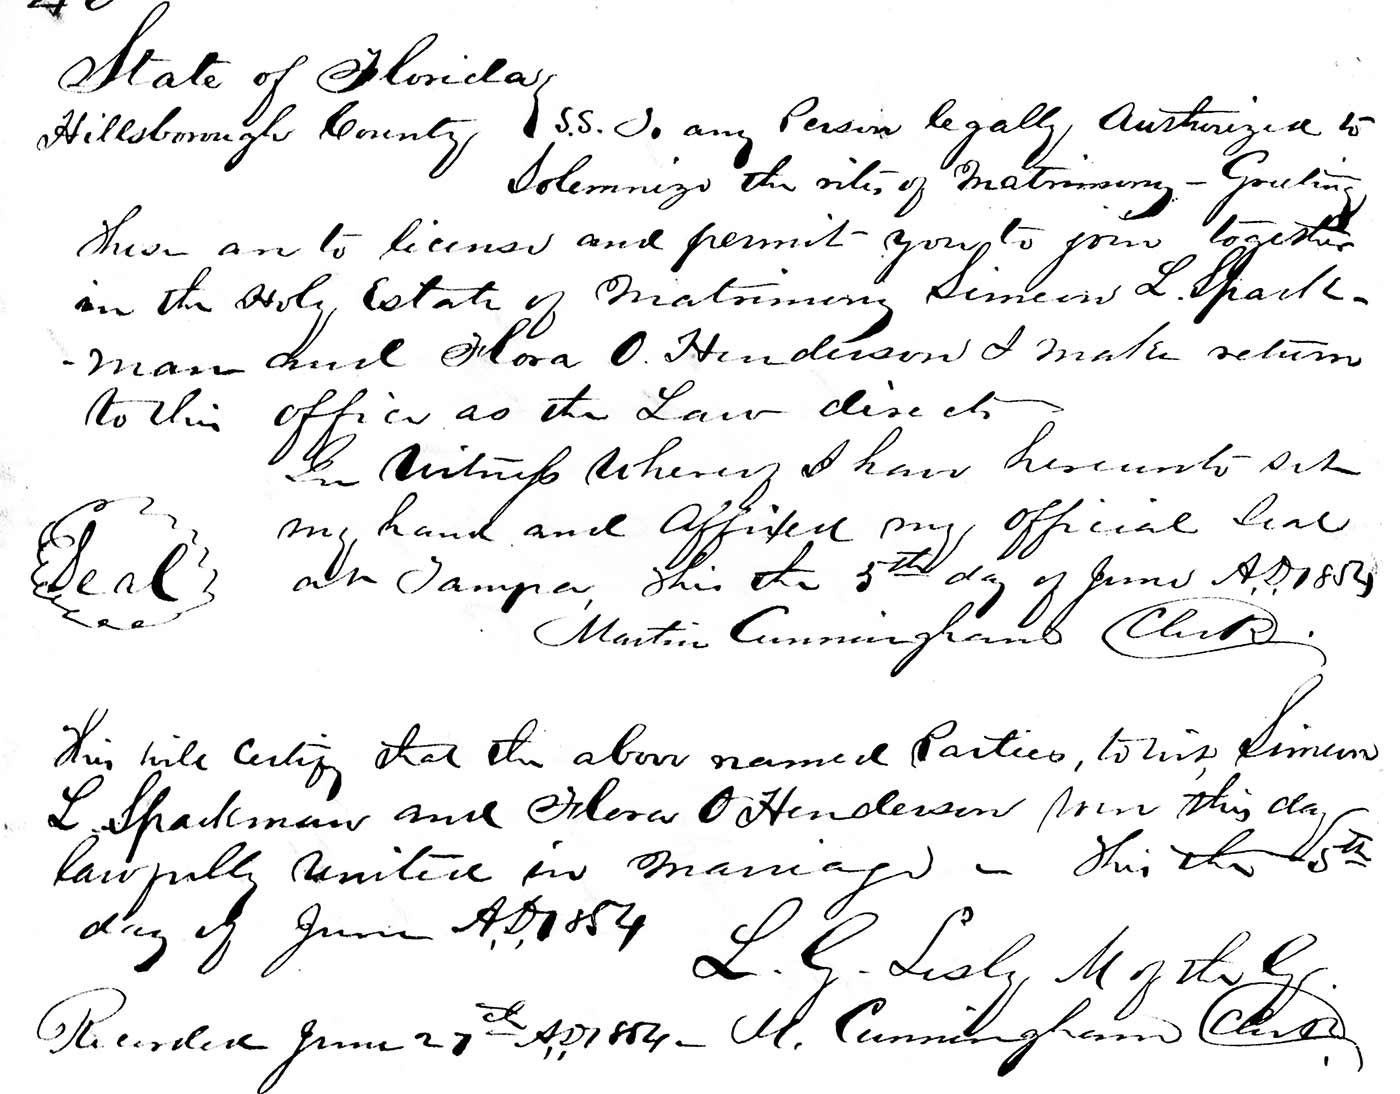 State of Florida
Hillsborough County } S.S. To any Person legally Authorized to
Solemnize the rites of Matrimony – Greeting
These are to license and permit you to join together
in the Holy Estate of Matrimony Simeon L. Spark-
-man and Flora O. Henderson & make return
to this office as the Law directs
In Witness Whereof I have hereunto set
my hand and Affixed my official Seal
Seal
at Tampa, this the 5th day of June A.D. 1854
Martin Cunningham Clerk.
This will Certify that the above named Parties, to wit, Simeon
L. Sparkman and Flora O Henderson were this day
lawfully United in Marriage – This the 5th
day of June A.D. 1854
L. G. Lesly M of the G.
Recorded June 27th A.D. 1854 – M. Cunningham Clerk